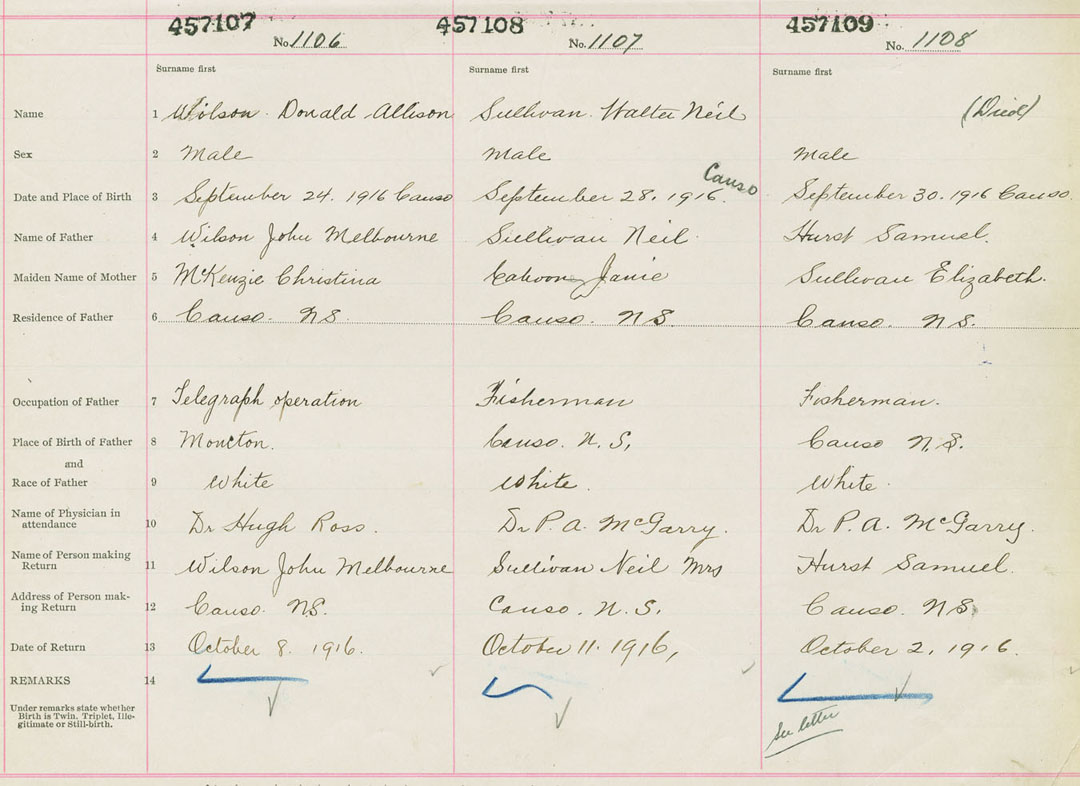 457107 457108 457109
No. 1106 No. 1107 No. 1108
Surname first Surname first Surname first
Name 1 Wilson Donald Allison Sullivan Walter Neil (Died)
Sex 2 Male Male Male
Date and Place of Birth 3 September 24. 1916 Canso September 28, 1916. Canso September 30. 1916 Canso.
Name of Father 4 Wilson John Melbourne Sullivan Neil Hurst Samuel.
Maiden Name of Mother 5 McKenzie Christina Cahoon Janie Sullivan Elizabeth.
Residence of Father 6 Canso. NS. Canso. NS. Canso. NS.
Occupation of Father 7 Telegraph operation Fisherman Fisherman.
Place of Birth of Father 8 Moncton. Canso. N. S. Canso N.S.
and
Race of Father 9 White White. White.
Name of Physician in
attendance 10 Dr Hugh Ross. Dr P. A. McGarry. Dr P. A. McGarry.
Name of Person making
Return 11 Wilson John Melbourne Sullivan Neil Mrs Hurst Samuel.
Address of Person mak-
ing Return 12 Canso. NS. Canso. N. S. Canso. NS.
Date of Return 13 October 8. 1916. October 11. 1916, October 2, 1916.
REMARKS 14
Under remarks state whether
Birth is Twin. Triplet, Ille-
gitimate or Still-birth.
See letter